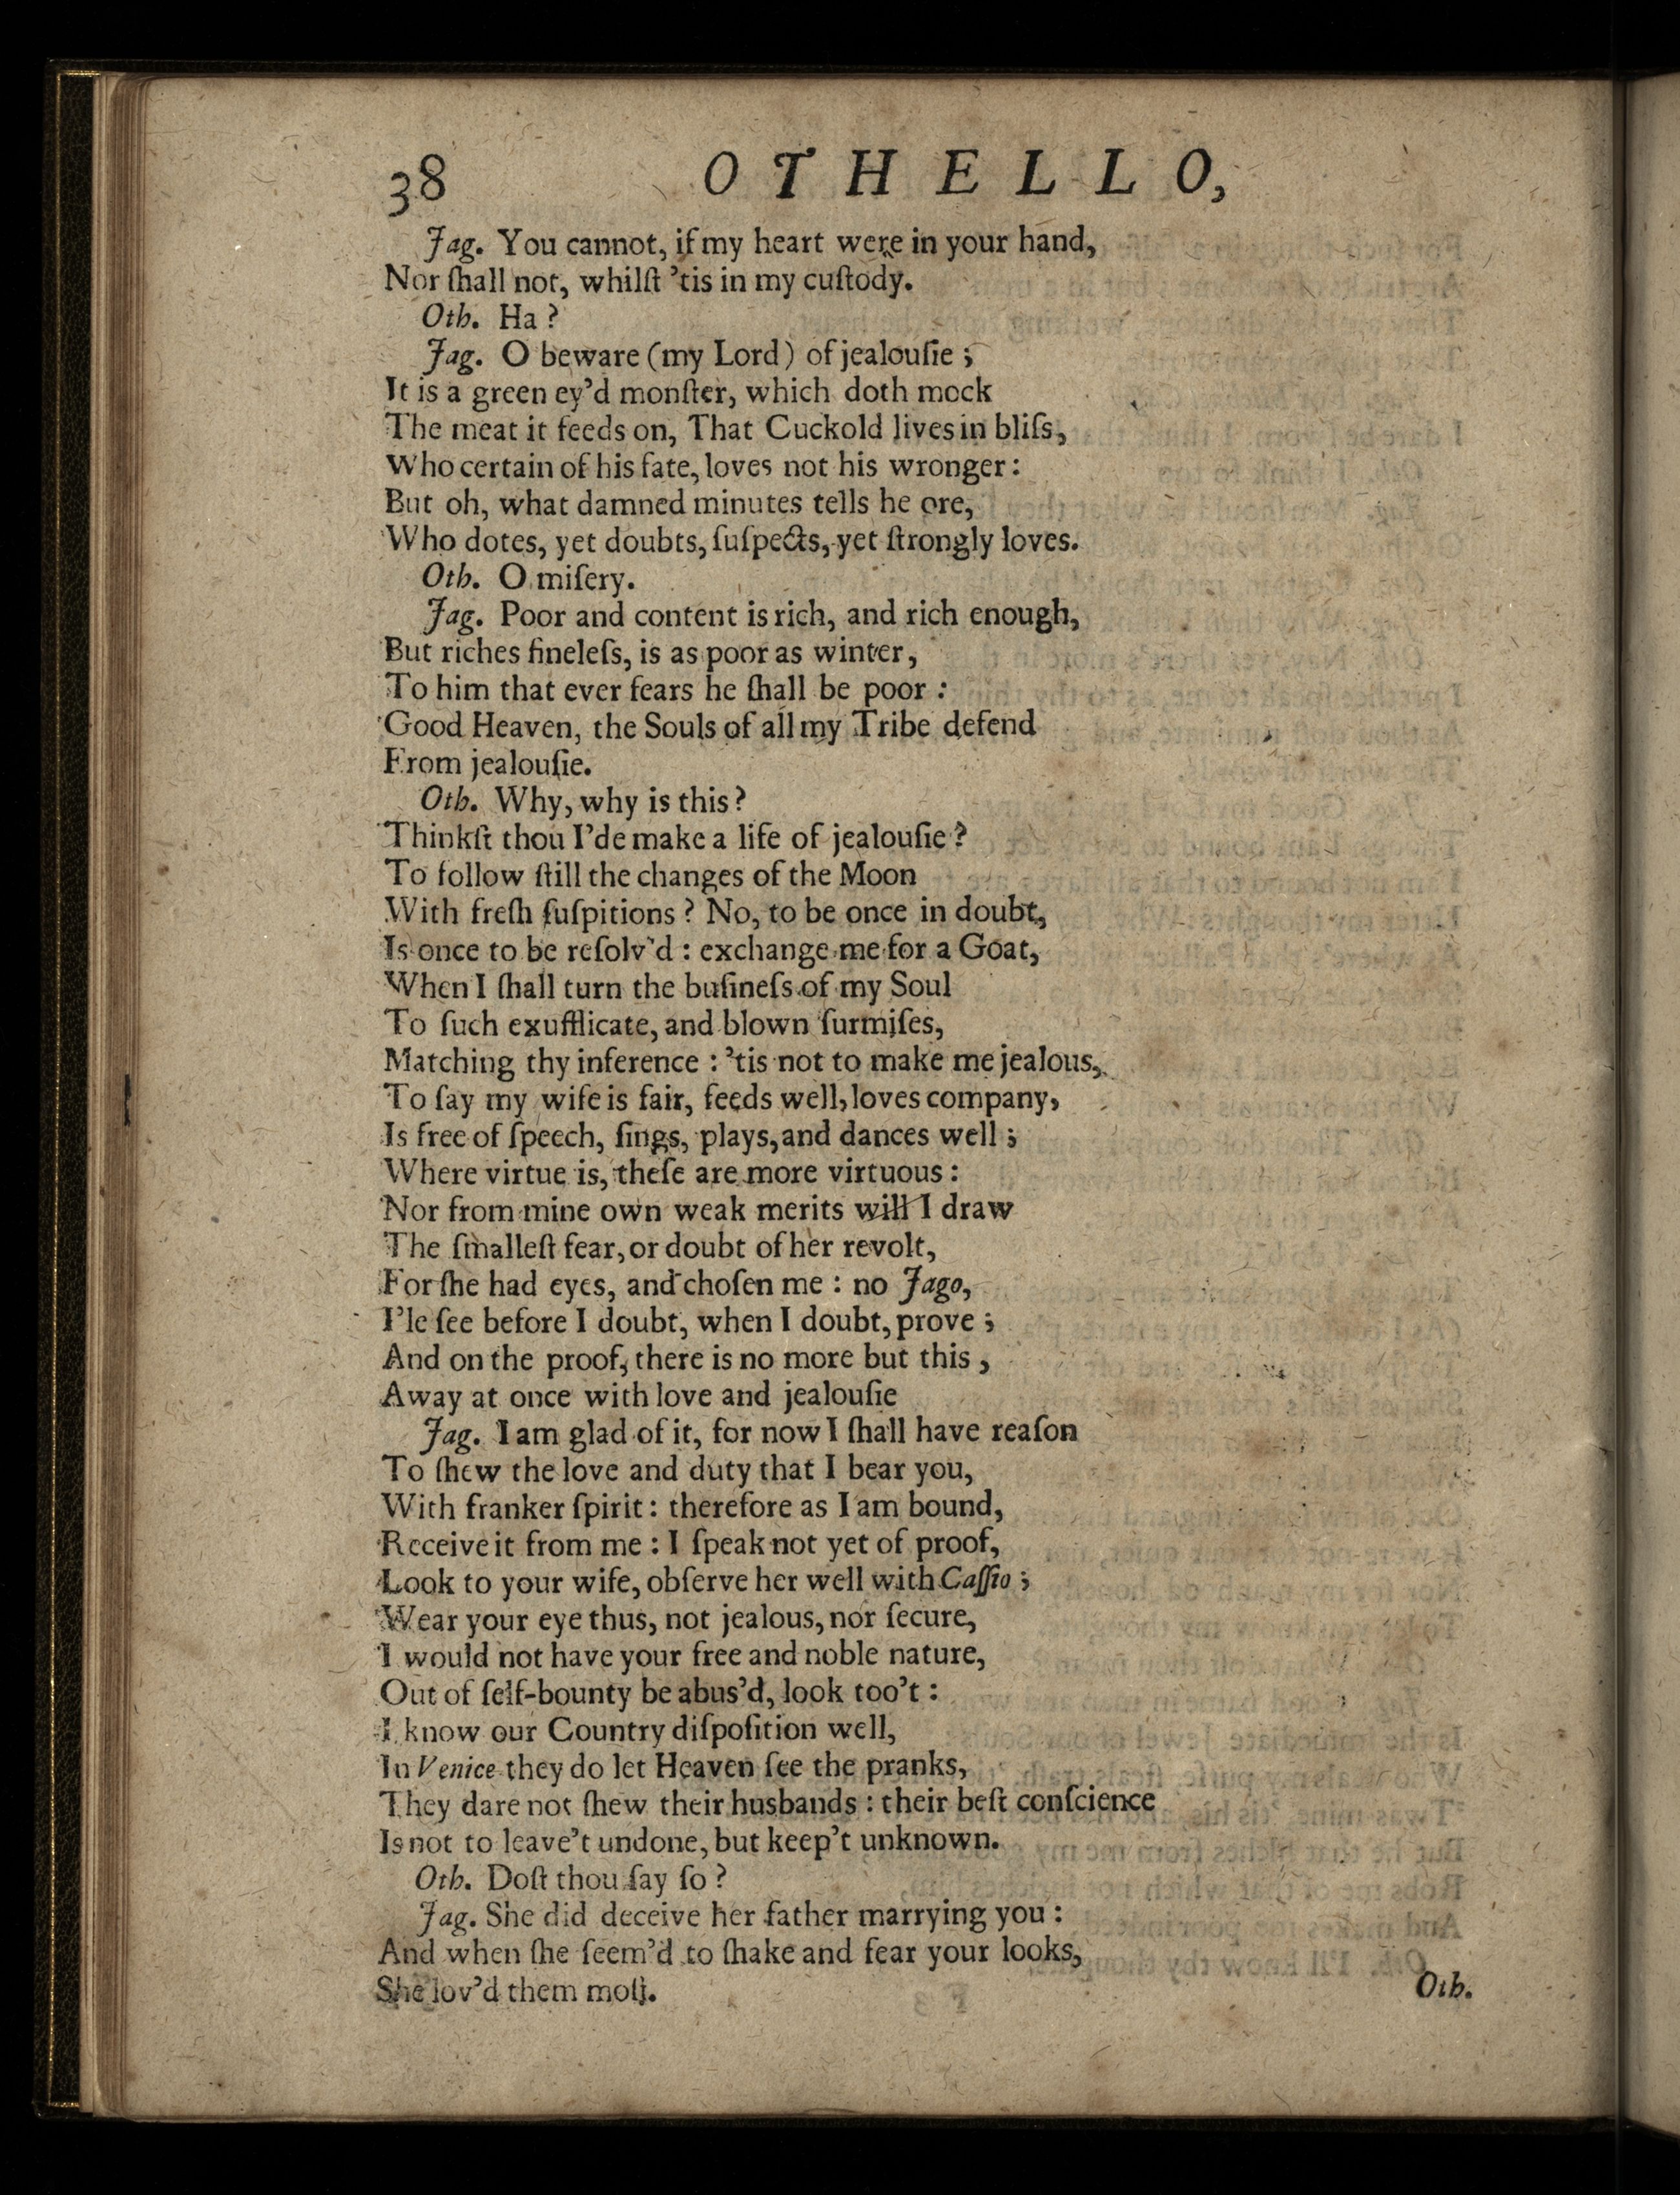 38 OTHELLO,
Jag. You cannot, if my heart were in your hand,
Nor ſhall not, whilſt ’tis in my cuſtody.
Oth. Ha?
Jag. O beware (my Lord) of jealouſie;
It is a green ey’d monſter, which doth mock
The meat it feeds on, That Cuckold lives in bliſs,
Who certain of his fate, loves not his wronger:
But oh, what damned minutes tells he ore,
Who dotes, yet doubts, ſuſpects, yet ſtrongly loves.
Oth. O miſery.
Jag. Poor and content is rich, and rich enough,
But riches fineleſs, is as poor as winter,
To him that ever fears he ſhall be poor:
Good Heaven, the Souls of all my Tribe defend
From jealouſie.
Oth. Why, why is this?
Thinkſt thou I’de make a life of jealouſie?
To follow ſtill the changes of the Moon
With freſh ſuſpitions? No, to be once in doubt,
Is once to be reſolv’d: exchange me for a Goat,
When I ſhall turn the buſineſs of my Soul
To ſuch exufflicate, and blown ſurmiſes,
Matching thy inference: ’tis not to make me jealous,
To ſay my wife is fair, feeds well, loves company,
Is free of ſpeech, ſings, plays, and dances well;
Where virtue is, theſe are more virtuous:
Nor from mine own weak merits will I draw
The ſmalleſt fear, or doubt of her revolt,
For ſhe had eyes, and choſen me: no Jago,
I’le ſee before I doubt, when I doubt, prove;
And on the proof, there is no more but this,
Away at once with love and jealouſie
Jag. I am glad of it, for now I ſhall have reaſon
To ſhew the love and duty that I bear you,
With franker ſpirit: therefore as I am bound,
Receive it from me: I ſpeak not yet of proof,
Look to your wife, obſerve her well with Caſſio;
Wear your eye thus, not jealous, nor ſecure,
I would not have your free and noble nature,
Out of ſelf-bounty be abus’d, look too’t:
I know our Country diſpoſition well,
In Venice they do let Heaven ſee the pranks,
They dare not ſhew their husbands: their beſt conſcience
Is not to leave’t undone, but keep’t unknown.
Oth. Doſt thou ſay ſo?
Jag. She did deceive her father marrying you:
And when ſhe ſeem’d to ſhake and fear your looks,
She lov’d them moſt.
Oth.